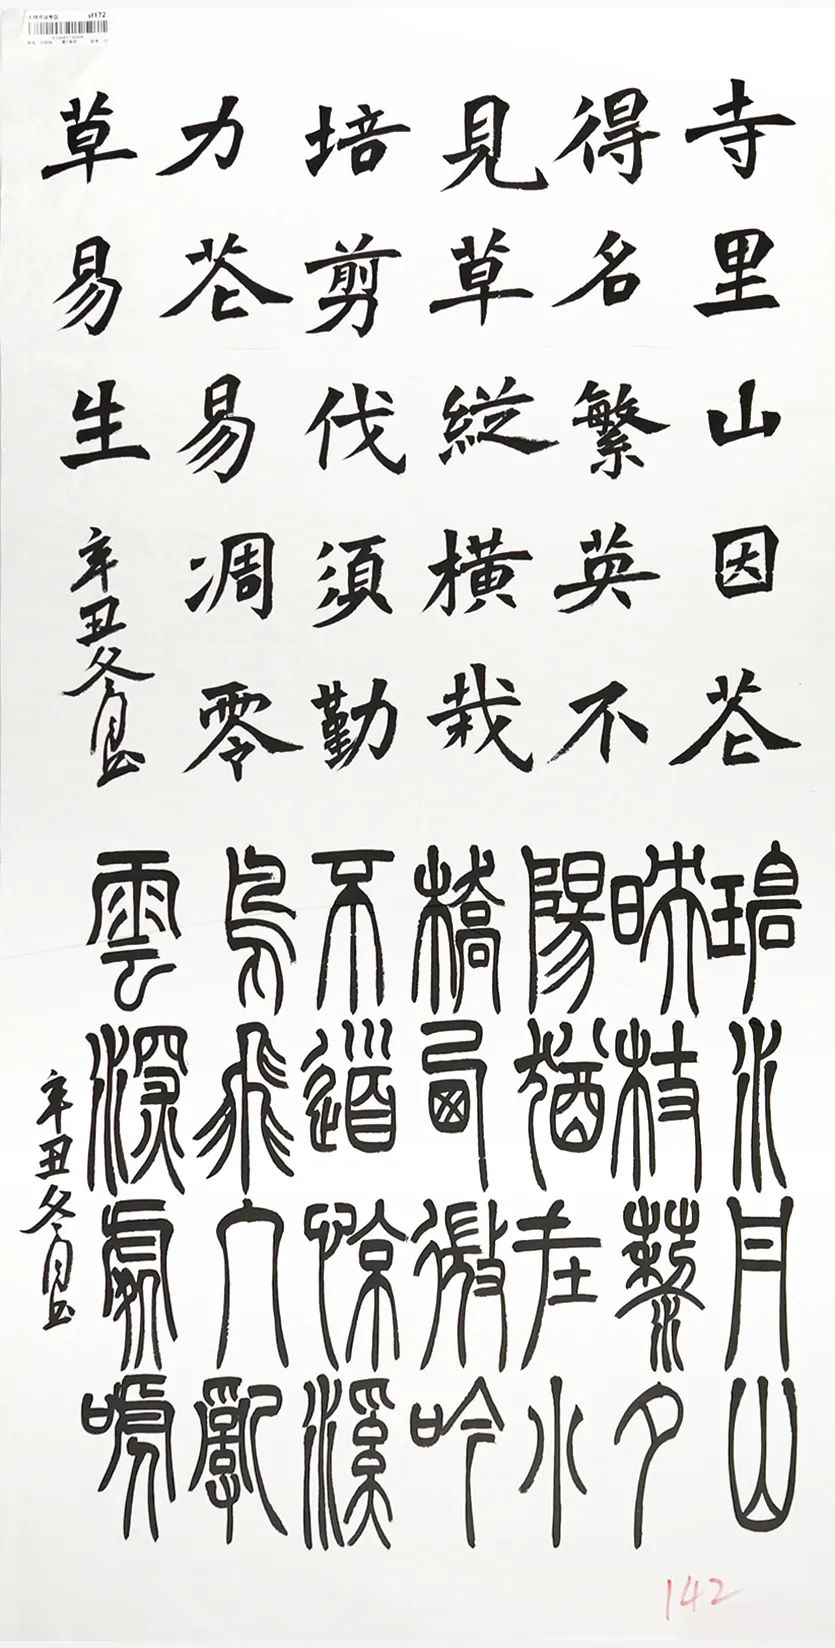 sf172
寺里山因花
得名繁英不
見草縱橫栽
培剪伐須勤
力花易凋零
草易生
辛丑冬月
碧水丹山
映杖藜夕
陽猶在小
橋西微吟
不道惊溪
鳥飛入亂
雲深處嗁
辛丑冬月
142